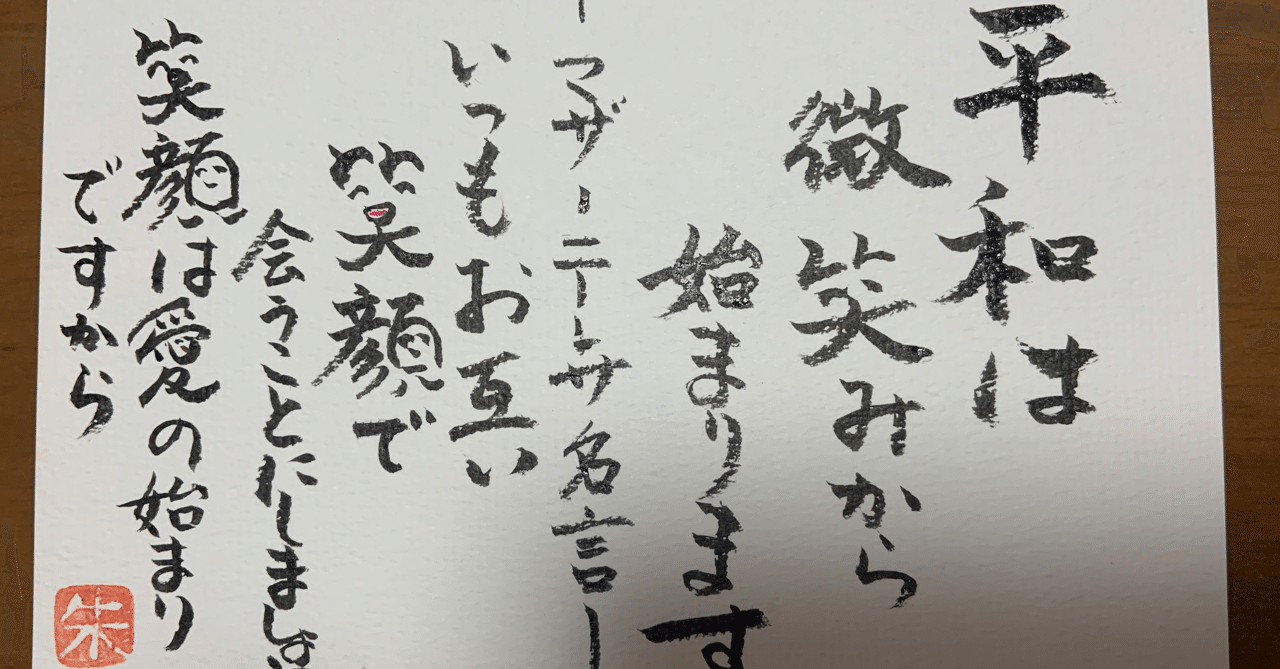 平和は
微笑みから
始まります
ーマザーテレサ名言ー
いつもお互い
笑顔で
会うことにしましょ
笑顔は愛の始まり
ですから
朱